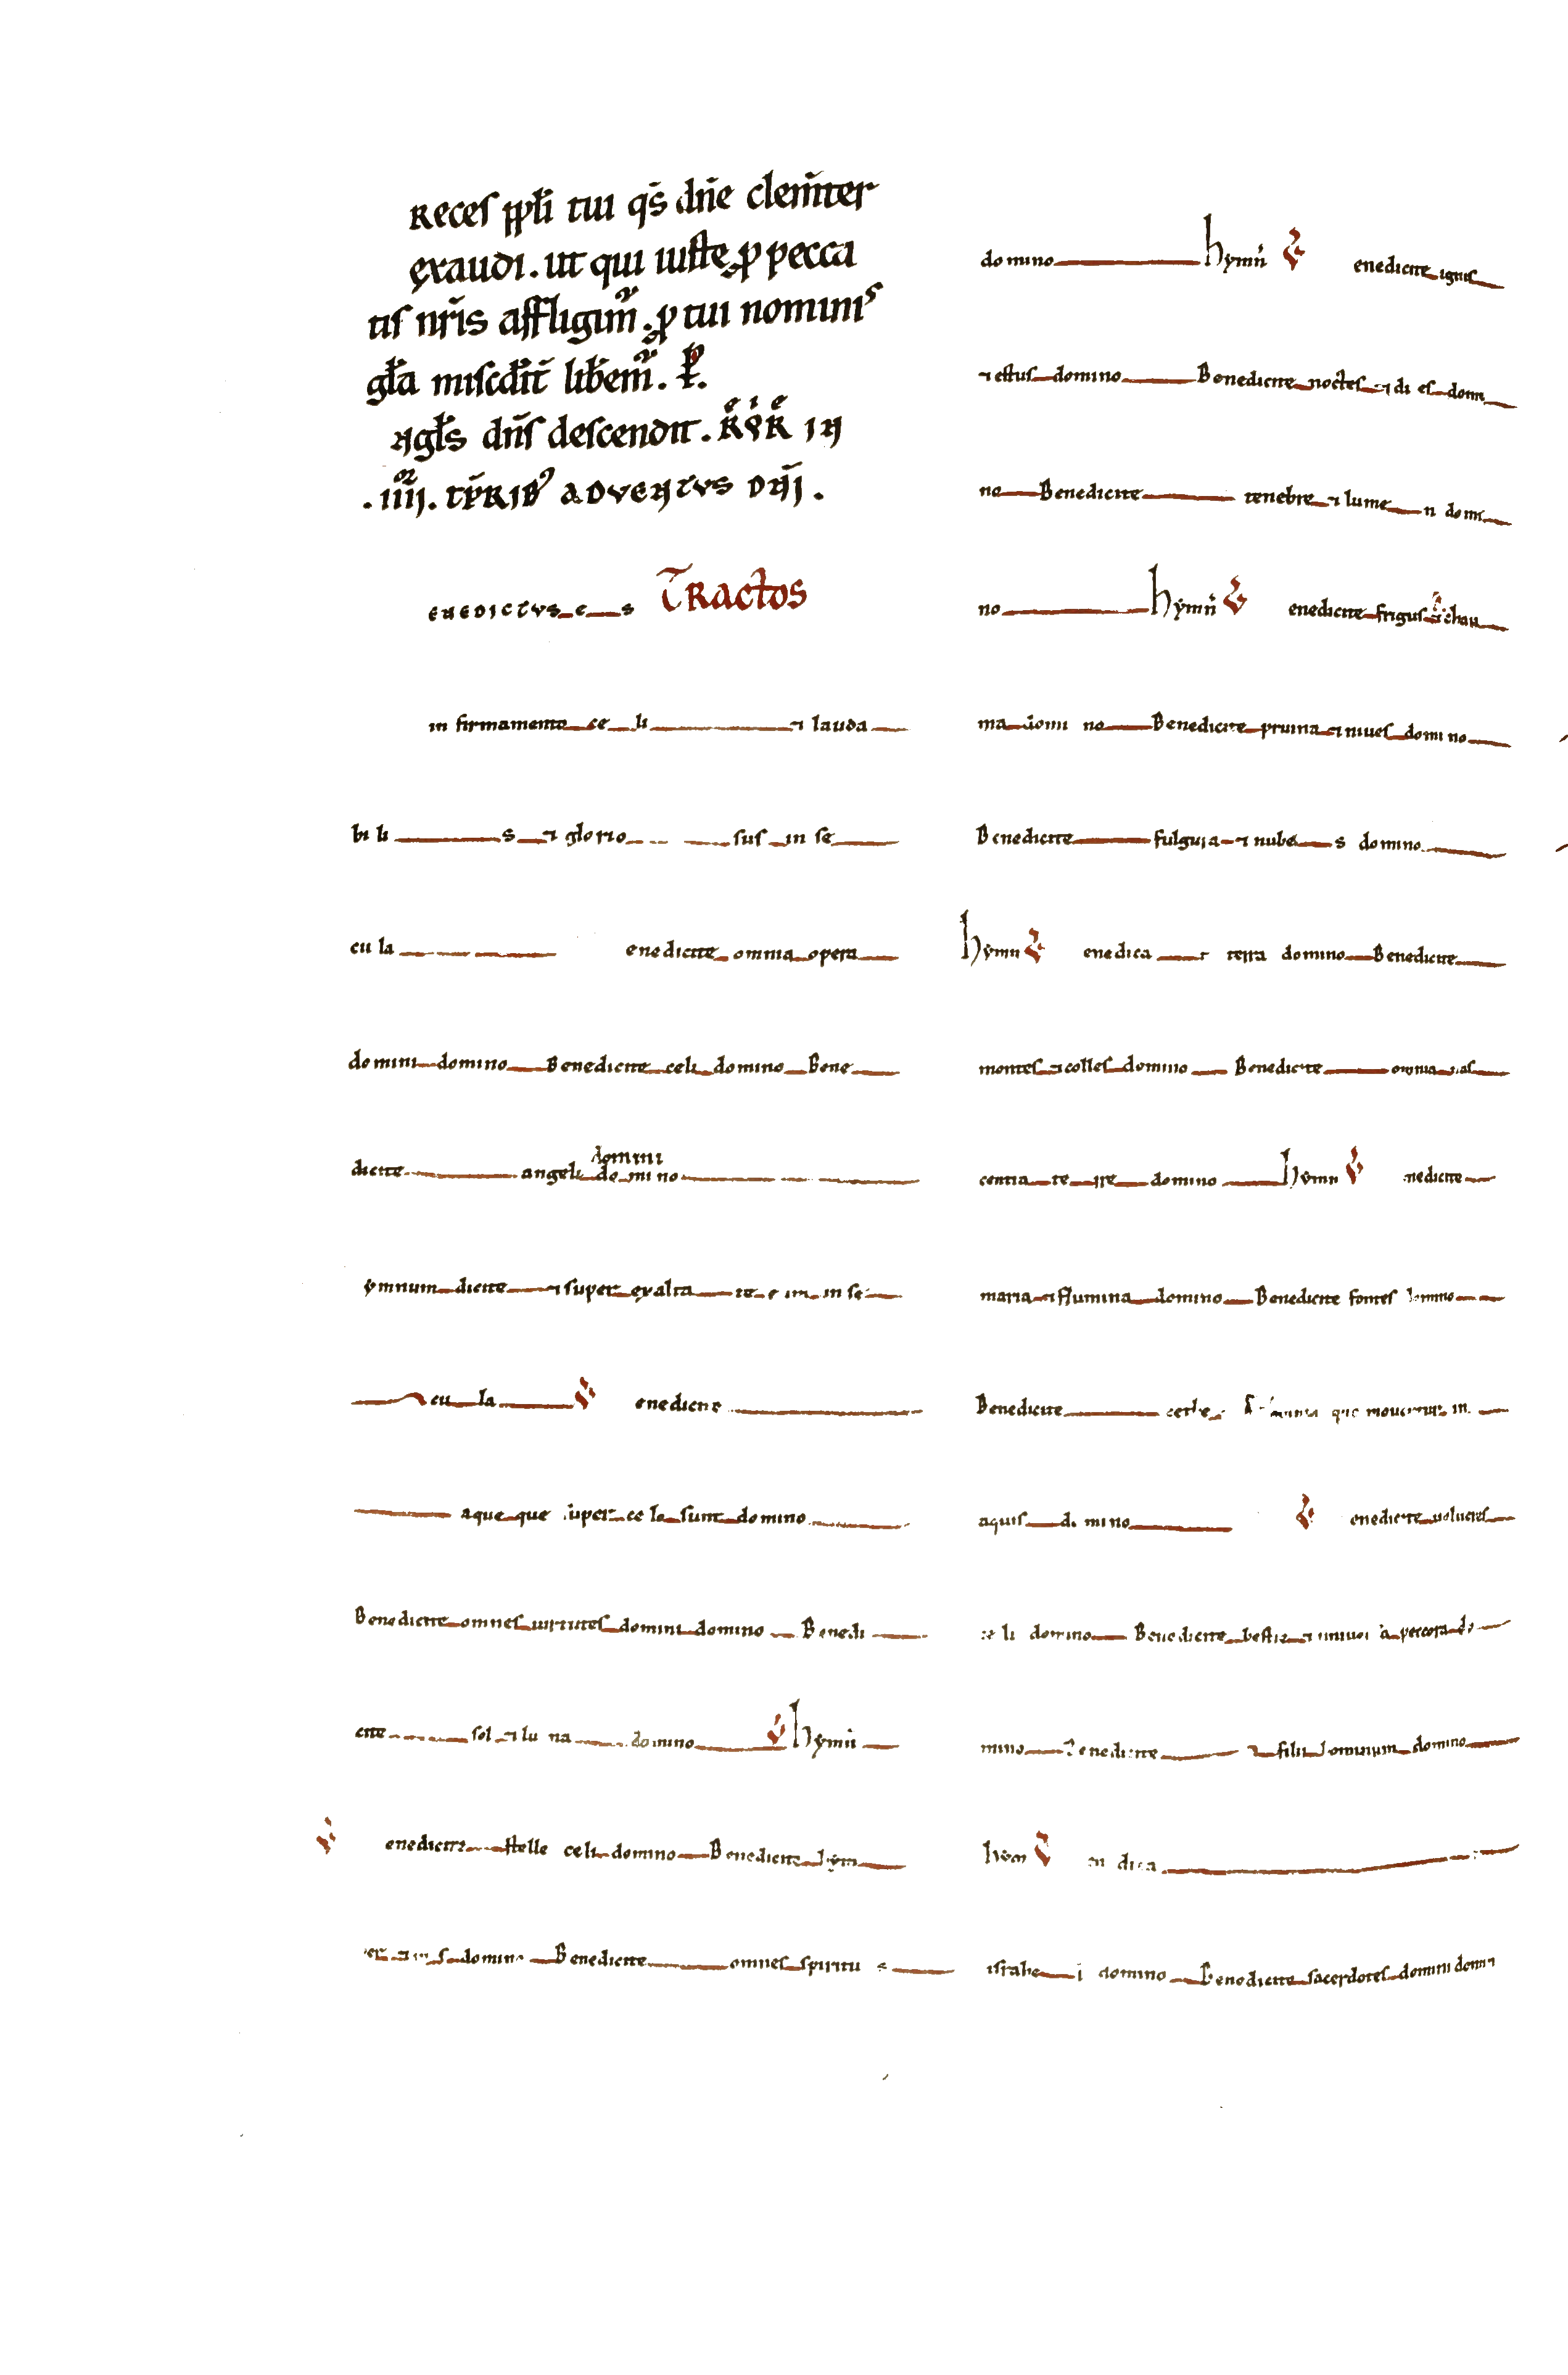 Reces ppłi tui qs̄ dn̄e clem̄ter
exaudi . ut qui iuste ꝓ pecca
tis nr̄is affligim̄ . ꝓ tui nominis
gl̄a miscd̄it̄ lib̄em̄ . P.
Agl̄s dn̄s descendit . R̄ R̄ IN
. IIII . TP̄RIBꝰ ADVENTUS DN̄I .
ENEDICTUS e s Tractos
in firmamento ce li ⁊ lauda
bi li s ⁊ glorio sus in se
cu la enedicite omnia opera
domini domino Benedicite celi domino Bene
domini
dicite angeli do mi no
ymnum dicite ⁊ super exalta te e um in se
cu la V enedicite
aque que super ce lo sunt domino
Benedicite omnes uirtutes domini domino Benedi
cite sol ⁊ lu na domino V hymn̄
V enedicite stelle celi domino Benedicite
domino Benedicite omnes spiritu s
domino hymn̄ V enedicite ignis
⁊ estus domino Benedicite noctes ⁊ di es domi
no Benedicite tenebre ⁊ lume n domi
no hymn̄ V enedicite frigus ⁊ chau
ma domi no Benedicite pruina ⁊ niues domi no
Benedicite fulgura ⁊ nube s domino
hymn V enedica t terra domino Benedicite
montes ⁊ colles domino Benedicite omnia nas
centia te rre domino hymn V nedicite
maria ⁊ flumina domino Benedicite fontes domino
Benedicite cethe omnia que mouentur in
aquis do mino V enedicite uolucres
ce li domino Benedicite bestie ⁊ uniuersa pecora do
mino Benedicite filii hominum domino
hym V en dica
israhe l domino Benedicite sacerdotes domini domi